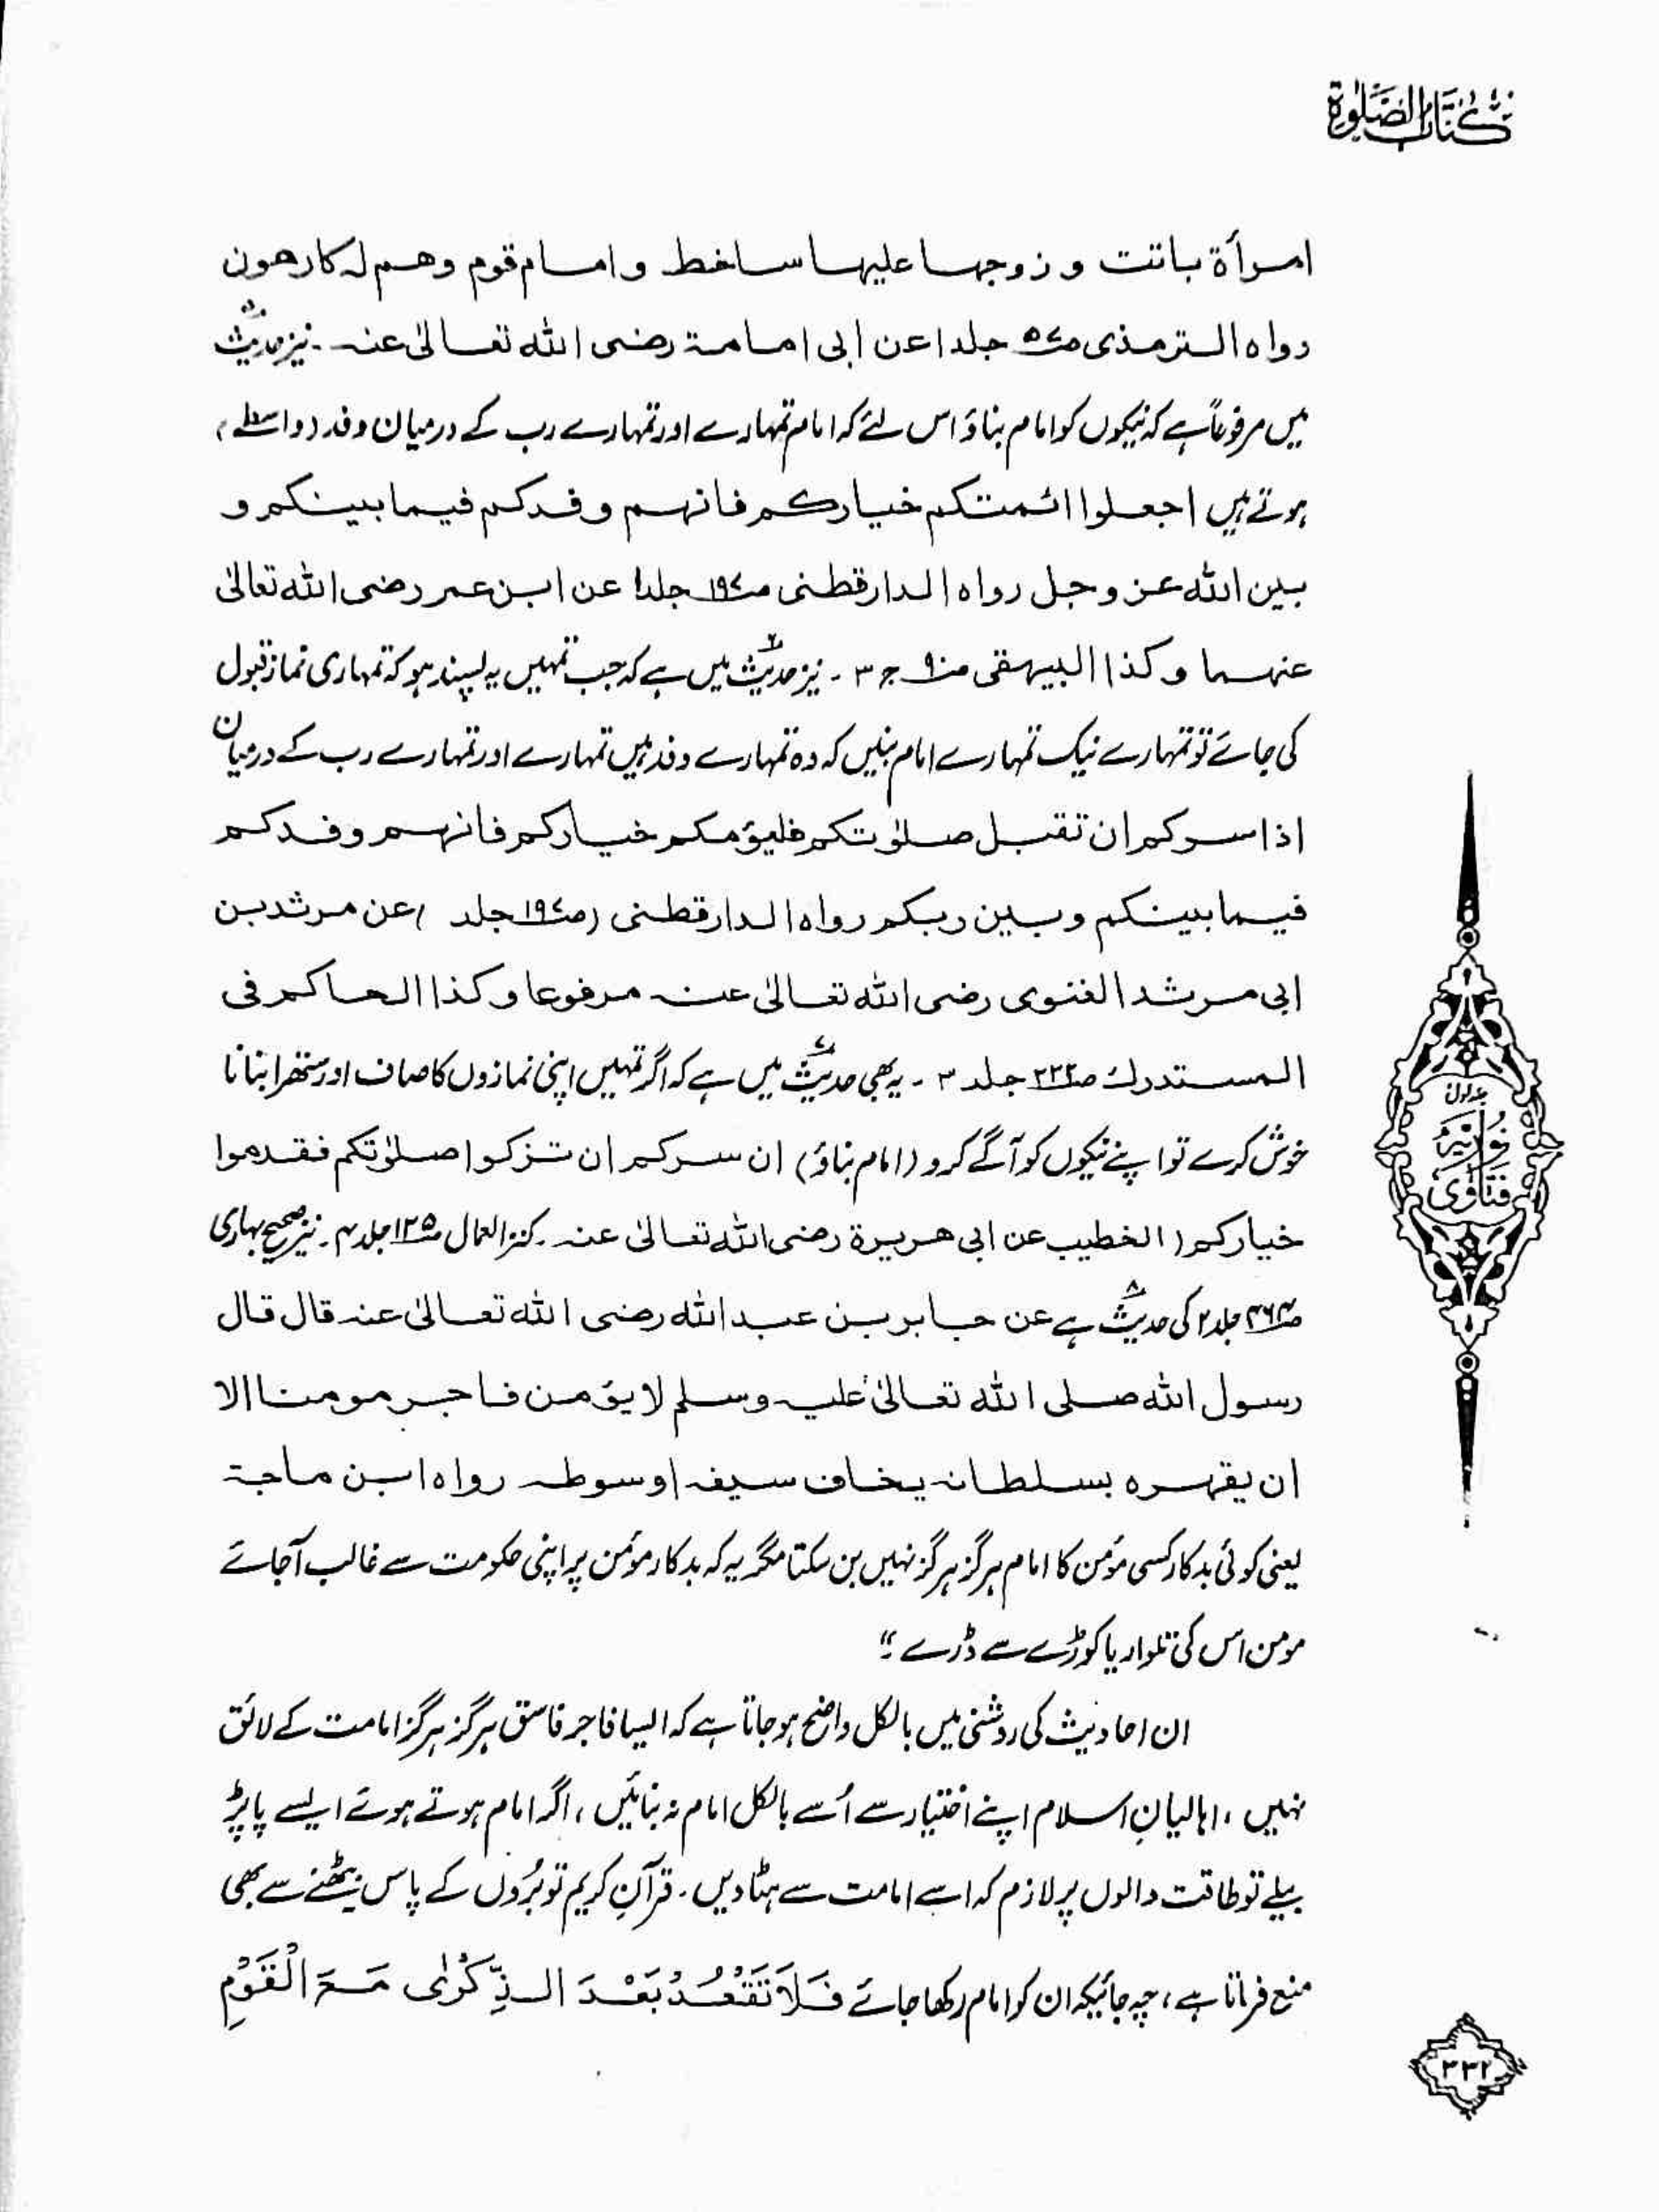 كتاب الصلوٰة
امرأة باتت و زوجها عليها ساخط و امام قوم وهم له كارهون
رواه الترمذى ص٤٧ جلد١ عن ابى امامة رضى الله تعالىٰ عنه ۔ نیز حدیث ۵
میں مرفوعاً ہے کہ نیکوں کو امام بناؤ اس لئے کہ امام تمہارے اور تمہارے رب کے درمیان وفد (واسطے)
ہوتے ہیں اجعلوا ائمتكم خياركم فانهم وفدكم فيما بينكم و
بين الله عز وجل رواه الدارقطنى ص۱۹۷ جلد۱ عن ابن عمر رضى الله تعالىٰ
عنهما وكذا البيهقى ص۹۰ ج ۳ ۔ نیز حدیث ۶ میں ہے کہ جب تمہیں یہ پسند ہو کہ تمہاری نماز قبول
کی جائے تو تمہارے نیک تمہارے امام بنیں کہ وہ تمہارے وفد ہیں تمہارے اور تمہارے رب کے درمیان
اذا سركم ان تقبل صلوٰتكم فليؤمكم خياركم فانهم وفدكم
فيما بينكم وبين ربكم رواه الدارقطنى (ص۱۹۷ جلد ) عن مرثد بن
ابى مرثد الغنوى رضى الله تعالىٰ عنه مرفوعا وكذا الحاكم فى
المستدرك ص۲۲۲ جلد ۳ ۔ یہ بھی حدیث ۷ میں ہے کہ اگر تمہیں اپنی نمازوں کا صاف اور ستھرا بنانا
خوش کرے تو اپنے نیکوں کو آگے کرو (امام بناؤ) ان سركم ان تزكوا صلوٰتكم فقدموا
خياركم (الخطيب عن ابى هريرة رضى الله تعالىٰ عنه ۔ کنز العمال ص۱۲۵ جلد ۴ ۔ نیز صحیح بہاری
ص۴۶۴ جلد ۲ کی حدیث ۸ ہے عن جابر بن عبد الله رضى الله تعالىٰ عنه قال قال
رسول الله صلى الله تعالىٰ عليه وسلم لا يؤمن فاجر مومنا الا
ان يقهره بسلطانه يخاف سيفه او سوطه رواه ابن ماجة
یعنی کوئی بدکار کسی مؤمن کا امام ہرگز ہرگز نہیں بن سکتا مگر یہ کہ بدکار مؤمن پر اپنی حکومت سے غالب آجائے
مومن اس کی تلوار یا کوڑے سے ڈرے ؛“
ان احادیث کی روشنی میں بالکل واضح ہوجاتا ہے کہ ایسا فاجر فاسق ہرگز ہرگز امامت کے لائق
نہیں ، اہالیانِ اسلام اپنے اختیار سے اُسے بالکل امام نہ بنائیں ، اگر امام ہوتے ہوئے ایسے پاپڑ
بیلے تو طاقت والوں پر لازم کہ اسے امامت سے ہٹادیں ۔ قرآنِ کریم تو بُروں کے پاس بیٹھنے سے بھی
منع فرماتا ہے ، چہ جائیکہ ان کو امام رکھا جائے فَلَا تَقْعُدْ بَعْدَ الذِّكْرٰى مَعَ الْقَوْمِ
جلد اول
فتاویٰ نوریہ
۳۳۲